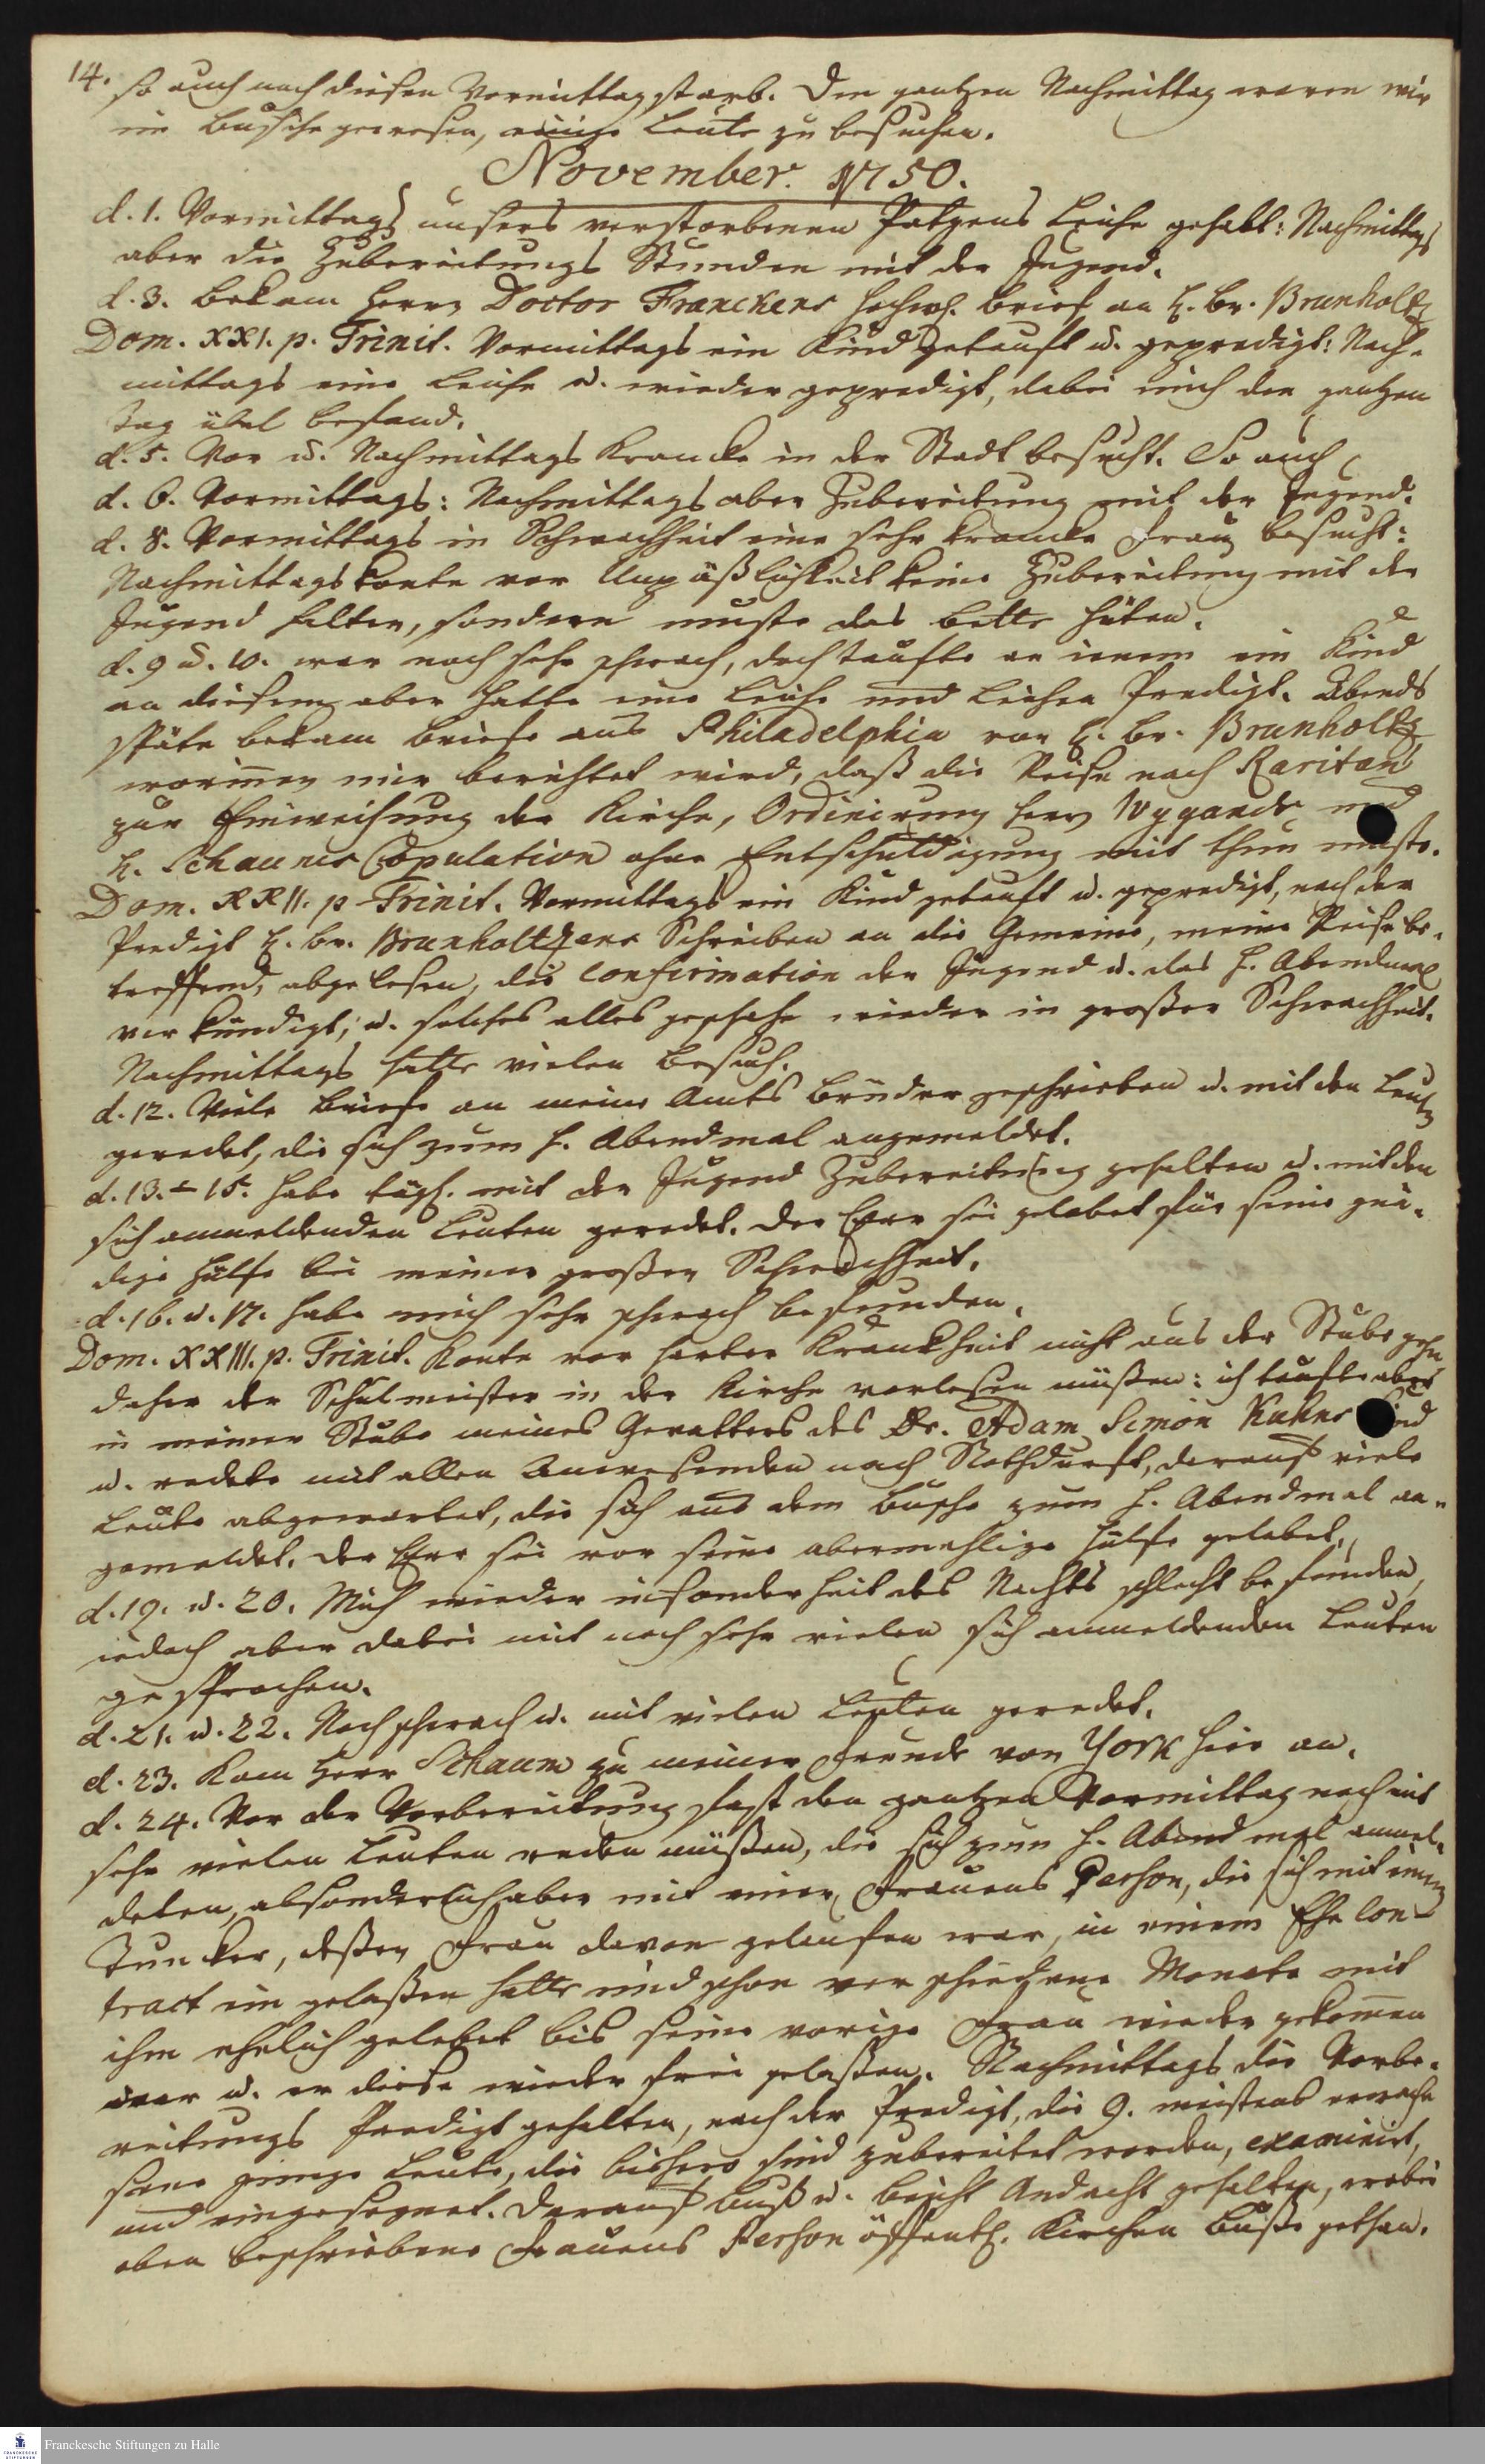 14.
so auch noch diesen Vormittag starb. Den gantzen Nachmittag waren wir
im Busche gewesen, einige Leute zu besuchen.
November. 1750.
d. 1. Vormittags unsers verstorbenen Patgens Leiche gehabt: Nachmittags
aber die Zubereitungs Stunden mit der Jugend.
d. 3. bekam Herrn Doctor Franckens hochw. Brief an H. Br. Brunholtz
Dom. XXI. p. Trinit. Vormittags ein Kind getauft u. gepredigt: Nach-
mittags eine Leiche u. wieder gepredigt, dabei mich den gantzen
Tag übel befand.
d. 5. Vor u. Nachmittags Krancke in der Stadt besucht. So auch
d. 6. Vormittags: Nachmittags aber Zubereitung mit der Jugend.
d. 8. Vormittags in Schwachheit eine sehr krancke Frau besucht:
Nachmittags konte vor Unpäßlichkeit keine Zubereitung mit der
Jugend halten, sondern muste das Bette hüten.
d. 9 u. 10. war noch sehr schwach, doch taufte an ienem ein Kind
an diesem aber hatte eine Leiche und Leichen Predigt. Abends
späte bekam Briefe aus Philadelphia von H. Br. Brunholtz,
worinnen mir berichtet wird, daß die Reise nach Raritan
zur Einweihung der Kirche, Ordinirung Herrn Wygands und
H. Schaums Copulation ohne Entschuldigung mit thun muste.
Dom. XXII. p Trinit. Vormittags ein Kind getauft u. gepredigt, nach der
Predigt H. Br. Brunholtzens Schreiben an die Gemeine, meine Reise be-
treffend, abgelesen, die Confirmation der Jugend u. das H. Abendmal
verkündigt; u. solches alles geschahe wieder in großer Schwachheit.
Nachmittags hatte vielen Besuch.
d. 12. Viele Briefe an meine Amts Brüder geschrieben u. mit den Leuten
geredet, die sich zum H. Abendmal angemeldet.
d. 13. - 15. habe tägl. mit der Jugend Zubereitung gehalten u. mit den
sich anmeldenden Leuten geredet. Der Herr sei gelobet für seine gnä-
dige Hülfe bei meiner großen Schwachheit.
d. 16. u. 17. habe mich sehr schwach befunden.
Dom. XXIII. p. Trinit. Konte vor harter Kranckheit nicht aus der Stube gehn,
daher der Schulmeister in der Kirche vorlesen müßen: ich taufte aber
in meiner Stube meines Gevatters des Dr. Adam Simon Kuhns Kind
u. redete mit allen Anwesenden nach Nothdurft, darauf viele
Leute abgewartet, die sich aus dem Busche zum H. Abendmal an-
gemeldet. Der Herr sei vor seine abermahlige Hülfe gelobet.
d. 19. u. 20. Mich wieder insonderheit des Nachts schlecht befunden,
iedoch aber dabei mit noch sehr vielen sich anmeldenden Leuten
gesprochen.
d. 21. u. 22. Noch schwach u. mit vielen Leuten geredet.
d. 23. Kam Herr Schaum zu meiner Freude von York hier an.
d. 24. Vor der Vorbereitung fast den gantzen Vormittag noch mit
sehr vielen Leuten reden müßen, die sich zum H. Abendmal anmel-
deten, absonderlich aber mit einer Frauens Person, die sich mit einem
Tuncker, deßen Frau davon gelaufen war, in einem Ehe Con-
tract ein gelaßen hatte und schon verschiedene Monate mit
ihm ehelich gelebet bis seine vorige Frau wieder gekommen
war u. er diese wieder frei gelaßen. Nachmittags die Vorbe-
reitungs Predigt gehalten, nach der Predigt, die 9. meistens erwach
sene junge Leute, die bishero sind zubereitet worden, examinirt,
und eingesegnet. Darauf Buß u. Beicht Andacht gehalten, wobei
oben beschriebene Frauens Person öffentl. Kirchen Buße gethan.
Franckesche Stiftungen zu Halle